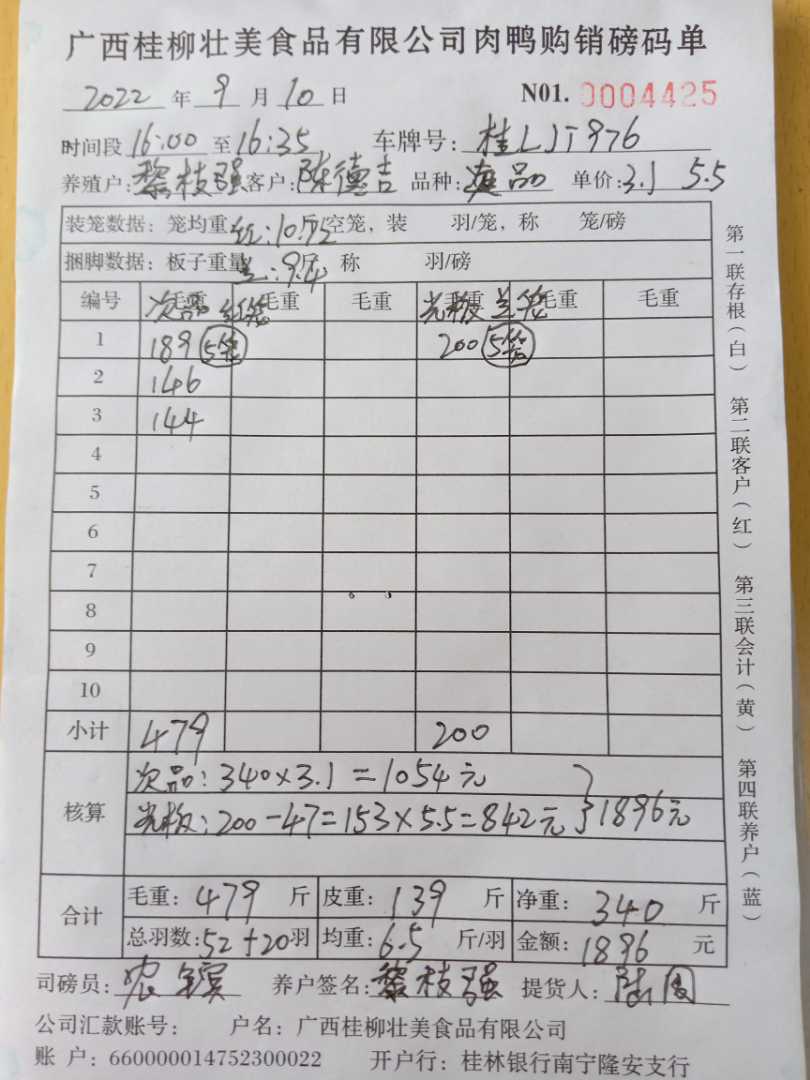 广西桂柳壮美食品有限公司肉鸭购销磅码单
2022 年 9 月 10 日 N01. 0004425
时间段 16:00 至 16:35 车牌号: 桂LJT976
养殖户: 黎枝强 客户: 陈德吉 品种: 品 单价: 3.1 5.5
装笼数据: 笼均重 红:10.72 斤/空笼, 装 羽/笼, 称 笼/磅
捆脚数据: 板子重量 兰:9.4 斤 称 羽/磅
编号 毛重 毛重 毛重 毛重 毛重 毛重
次品 红笼 光板 兰笼
1 189 5笼 200 5笼
2 146
3 144
4
5
6
7
8
9
10
小计 479 200
核算 次品: 340×3.1=1054元
光板: 200-47=153×5.5=842元 }1896元
合计 毛重: 479 斤 皮重: 139 斤 净重: 340 斤
总羽数: 52+20羽 均重: 6.5 斤/羽 金额: 1896 元
司磅员: 农 养户签名: 黎枝强 提货人:
公司汇款账号: 户名: 广西桂柳壮美食品有限公司
账 户: 660000014752300022 开户行: 桂林银行南宁隆安支行
第一联存根(白) 第二联客户(红) 第三联会计(黄) 第四联养户(蓝)